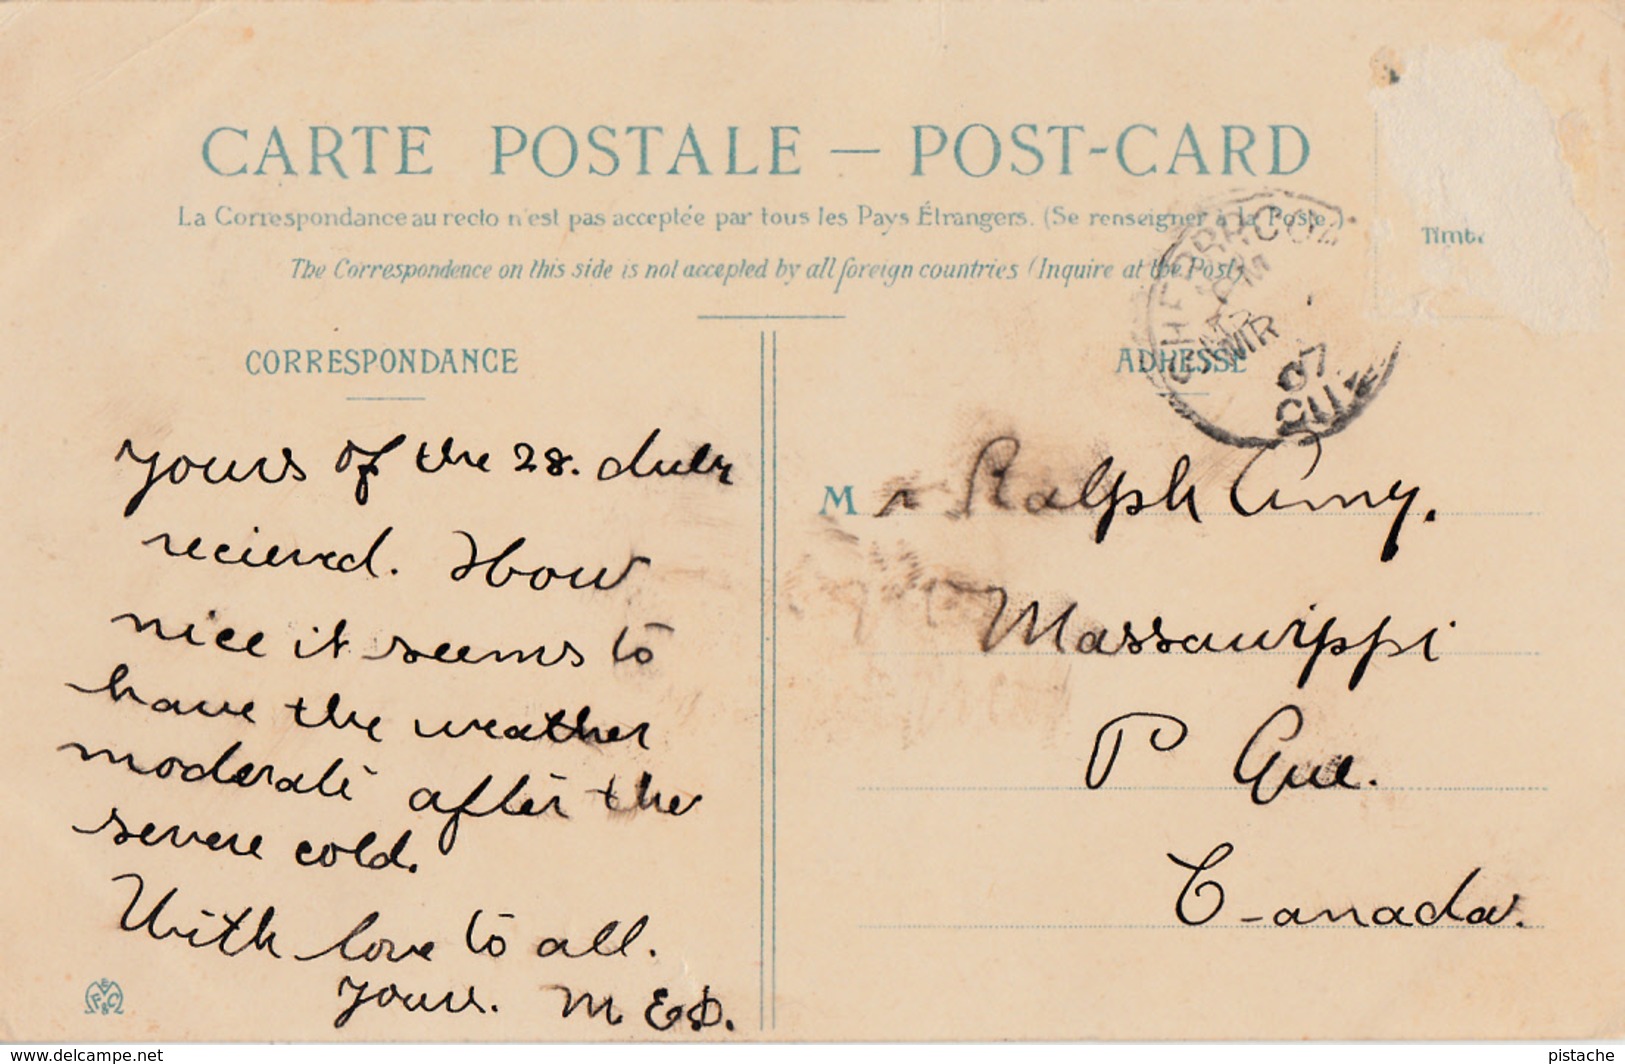 CARTE POSTALE — POST-CARD
La Correspondance au recto n'est pas acceptée par tous les Pays Étrangers. (Se renseigner à la Poste.)
The Correspondence on this side is not accepted by all foreign countries (Inquire at the Post)
Timbr
CORRESPONDANCE
ADHESSE
PM
MR
07
QUE
yours of the 28. duly
recieved. How
nice it seems to
have the weather
moderate after the
severe cold.
With love to all.
Yours. M. E. D.
Mr Ralph Amy.
Massawippi
P Que.
Canada.
E
F & C
www.delcampe.net
pistache